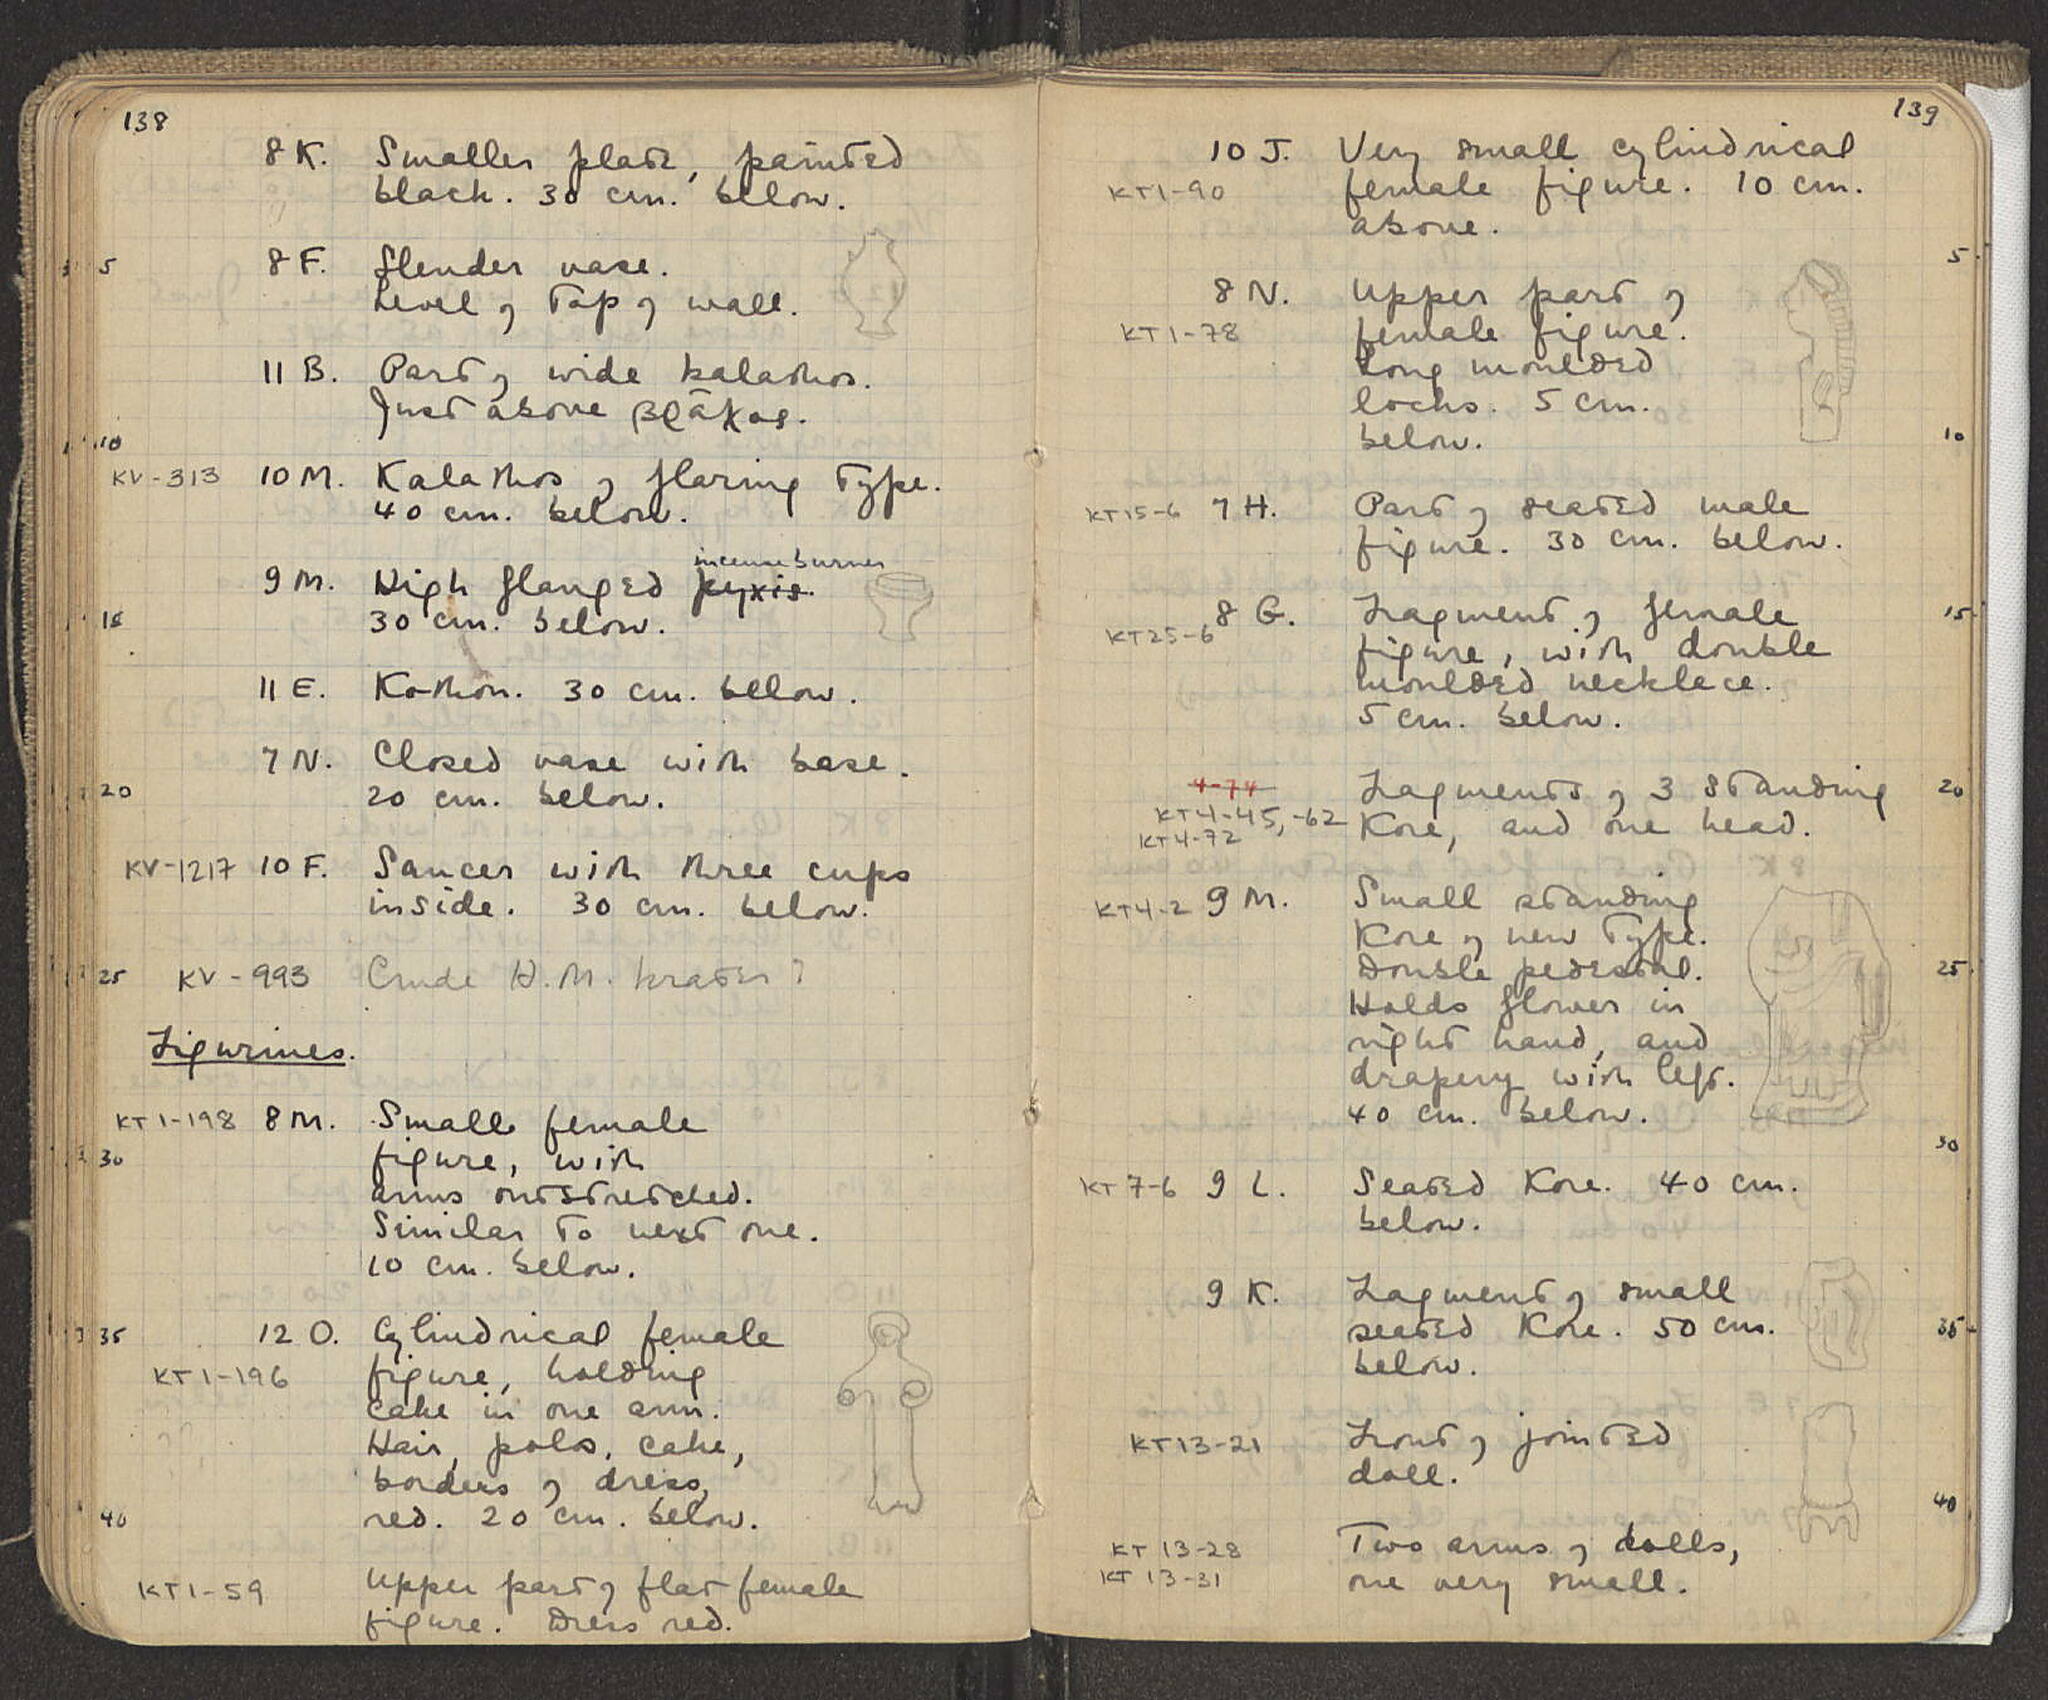 138
8 K. Smaller plate, painted
black. 30 cm. below.
5 8 F. Slender vase.
Level of top of wall.
11 B. Part of wide kalathos.
Just above βράχος.
10
KV-313 10 M. Kalathos of flaring type.
40 cm. below.
incense burner
9 M. High flanged pyxis.
15 30 cm. below.
11 E. Kothon. 30 cm. below.
7 N. Closed vase with base.
20 20 cm. below.
KV-1217 10 F. Saucer with three cups
inside. 30 cm. below.
25 KV-993 Crude H.M. krater?
Figurines.
KT1-198 8 M. Small female
30 figure, with
arms outstretched.
Similar to next one.
10 cm. below.
35 12 O. Cylindrical female
KT1-196 figure, holding
cake in one arm.
Hair, polos, cake,
borders of dress,
40 red. 20 cm. below.
KT1-59 Upper part of flat female
figure. Dress red.
139
10 J. Very small cylindrical
KT1-90 female figure. 10 cm.
above.
5
8 N. Upper part of
KT1-78 female figure.
Long moulded
locks. 5 cm.
below. 10
KT15-6 7 H. Part of seated male
figure. 30 cm. below.
8 G. Fragment of female 15
KT25-6 figure, with double
moulded necklace.
5 cm. below.
4-74 Fragments of 3 standing 20
KT4-45, -62 Kore, and one head.
KT4-72
KT4-2 9 M. Small standing
Kore of new type.
Double pedestal. 25
Holds flower in
right hand, and
drapery with left.
40 cm. below.
30
KT7-6 9 L. Seated Kore. 40 cm.
below.
9 K. Fragment of small
seated Kore. 50 cm. 35
below.
KT13-21 Front of jointed
doll.
40
KT 13-28 Two arms of dolls,
KT 13-31 one very small.